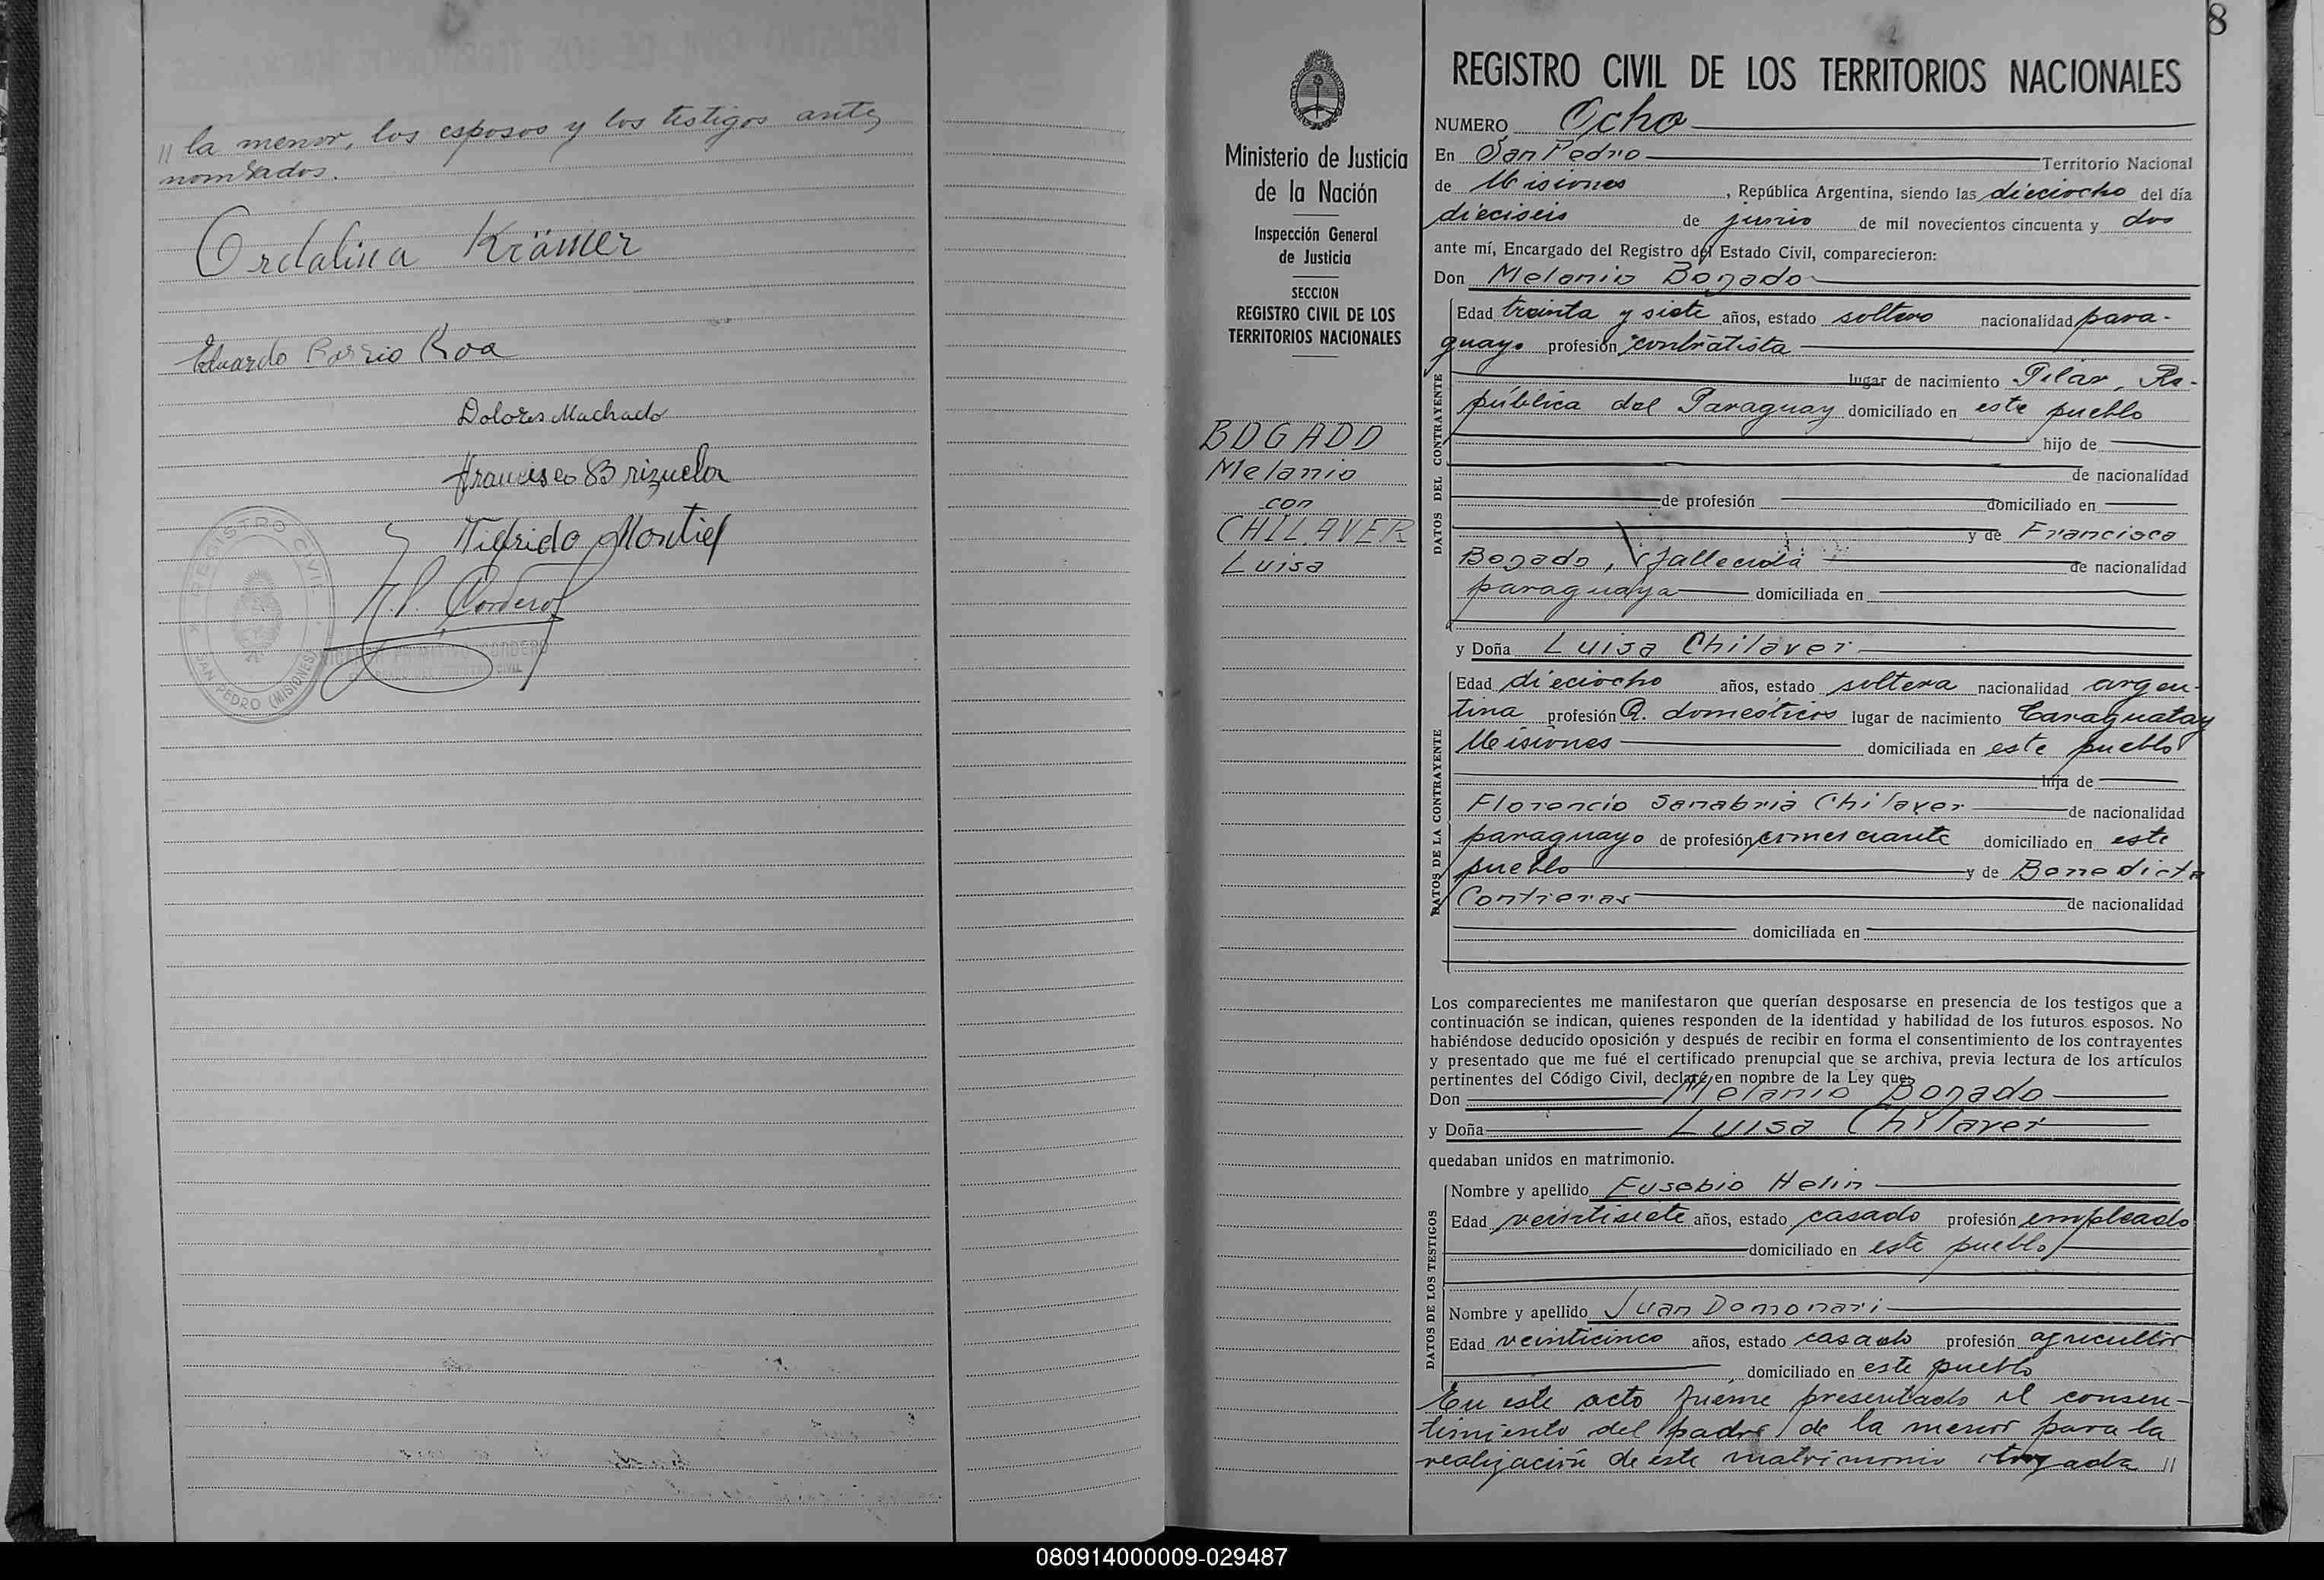 " la menor, los esposos y los testigos antes
nombrados.
Ordalina Krämer
Eduardo Barrio Roa
Dolores Machado
Francisco Brizuela
Tigrido Montiel
REGISTRO CIVIL
SAN PEDRO (MISIONES)
CORDERO
8
Ministerio de Justicia
de la Nación
Inspección General
de Justicia
SECCION
REGISTRO CIVIL DE LOS
TERRITORIOS NACIONALES
BOGADO
Melanio
con
CHILAVER
Luisa
REGISTRO CIVIL DE LOS TERRITORIOS NACIONALES
NUMERO Ocho
En San Pedro Territorio Nacional
de Misiones, República Argentina, siendo las dieciocho del día
dieciseis de junio de mil novecientos cincuenta y dos
ante mí, Encargado del Registro del Estado Civil, comparecieron:
Don Melanio Bogado
DATOS DEL CONTRAYENTE
Edad treinta y siete años, estado soltero nacionalidad para-
guayo profesión contratista
lugar de nacimiento Pilar, Re-
pública del Paraguay domiciliado en este pueblo
hijo de
de nacionalidad
de profesión domiciliado en
y de Francisca
Bogado, (fallecida de nacionalidad
paraguaya domiciliada en
y Doña Luisa Chilaver
DATOS DE LA CONTRAYENTE
Edad dieciocho años, estado soltera nacionalidad argen-
tina profesión Q. domésticos lugar de nacimiento Caraguatay
Misiones domiciliada en este pueblo
hija de
Florencio Sanabria Chilaver de nacionalidad
paraguayo de profesión comerciante domiciliado en este
pueblo y de Benedicta
Contreras de nacionalidad
domiciliada en
Los comparecientes me manifestaron que querían desposarse en presencia de los testigos que a
continuación se indican, quienes responden de la identidad y habilidad de los futuros esposos. No
habiéndose deducido oposición y después de recibir en forma el consentimiento de los contrayentes
y presentado que me fué el certificado prenupcial que se archiva, previa lectura de los artículos
pertinentes del Código Civil, declaré en nombre de la Ley que:
Don Melanio Bogado
y Doña Luisa Chilaver
quedaban unidos en matrimonio.
DATOS DE LOS TESTIGOS
Nombre y apellido Eusebio Helin
Edad veintisiete años, estado casado profesión empleado
domiciliado en este pueblo
Nombre y apellido Juan Domonari
Edad veinticinco años, estado casado profesión agricultor
domiciliado en este pueblo
En este acto fueme presentado el consen-
timiento del padre de la menor para la
realización de este matrimonio
080914000009-029487